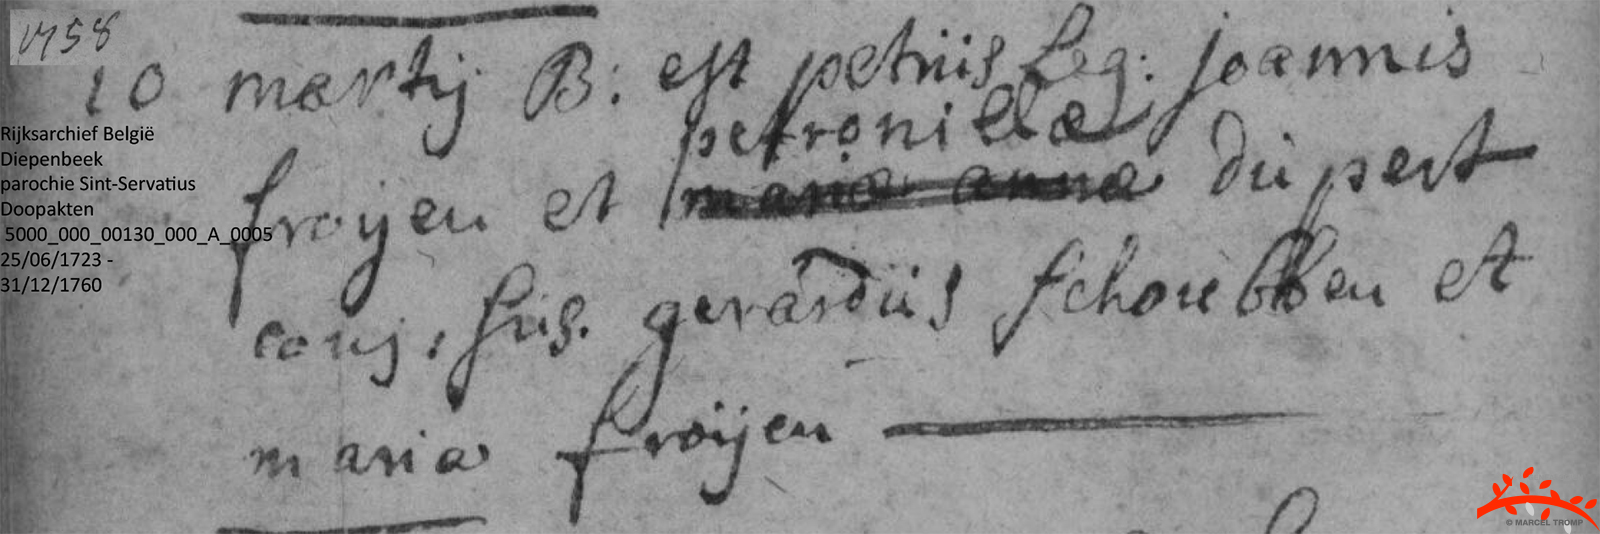 1758
10 martij B: est petrus Leg: joannis
petronillæ
froijen et mariæ annæ du pert
conj. sus. gerardus schoubben et
maria froijen
Rijksarchief België
Diepenbeek
parochie Sint-Servatius
Doopakten
5000_000_00130_000_A_0005
25/06/1723 -
31/12/1760
© MARCEL TROMP